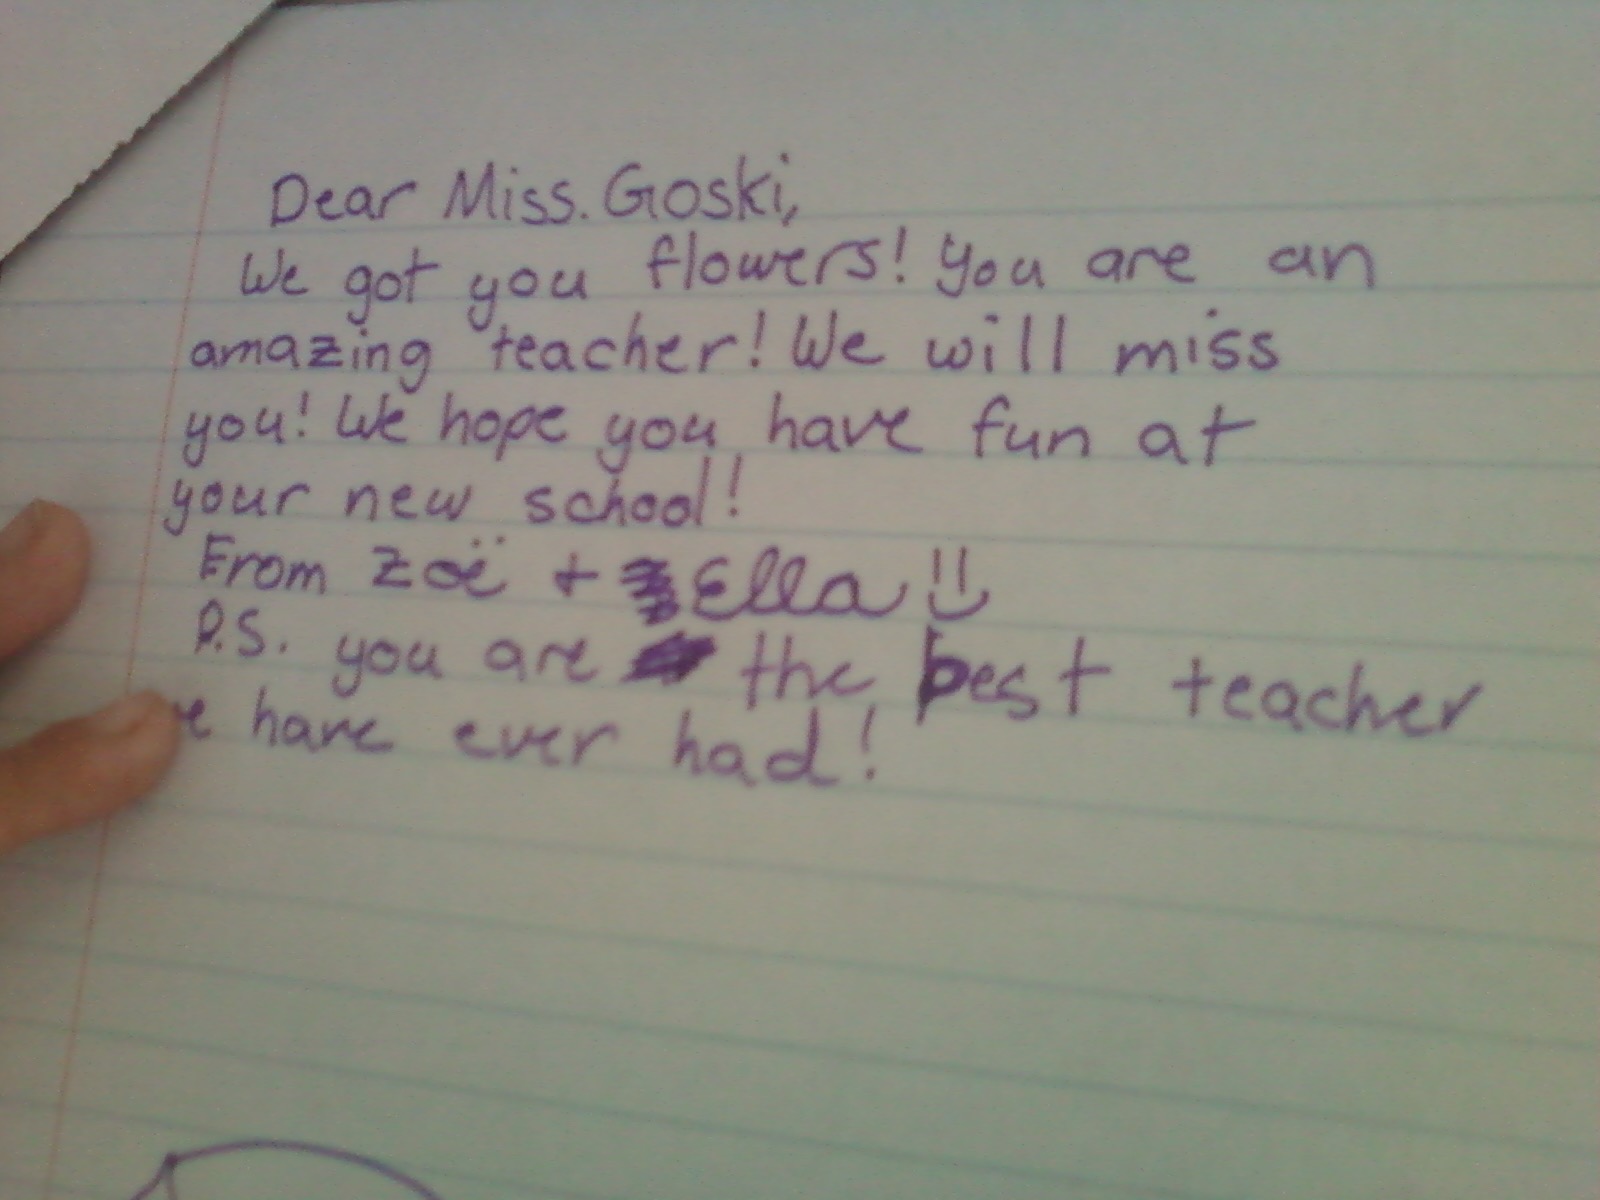 Dear Miss. Goski,
We got you flowers! You are an
amazing teacher! We will miss
you! We hope you have fun at
your new school!
From Zoë + Ella !!
P.S. you are the best teacher
have ever had!